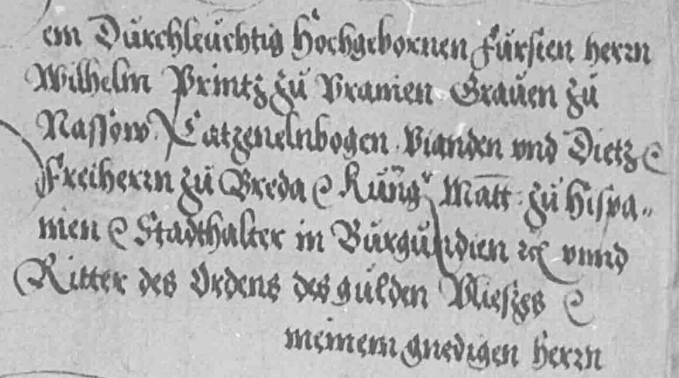 em Durchleuchtig Hochgebornen Fursten herrn
Wilhelm Printz zu Vranien Grauen zu
Nassow Catzenelnbogen Vianden vnd Dietz ꝛc
Freiherrn zu Breda ꝛc Kung Matt: zu Hispa„
nien ꝛc Stadthalter in Burgundien ꝛc vnnd
Ritter des Ordens des gulden Vlieszs ꝛc
meinem gnedigen herrn